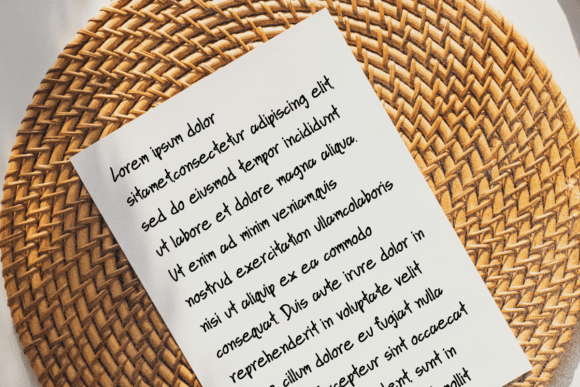 Lorem ipsum dolor
sitametconsectetur adipiscing elit,
sed do eiusmod tempor incididunt
ut labore et dolore magna aliqua.
Ut enim ad minim veniam,quis
nostrud exercitation ullamcolaboris
nisi ut aliquip ex ea commodo
consequat. Duis aute irure dolor in
reprehenderit in voluptate velit
cillum dolore eu fugiat nulla
sint occaecat
sunt in